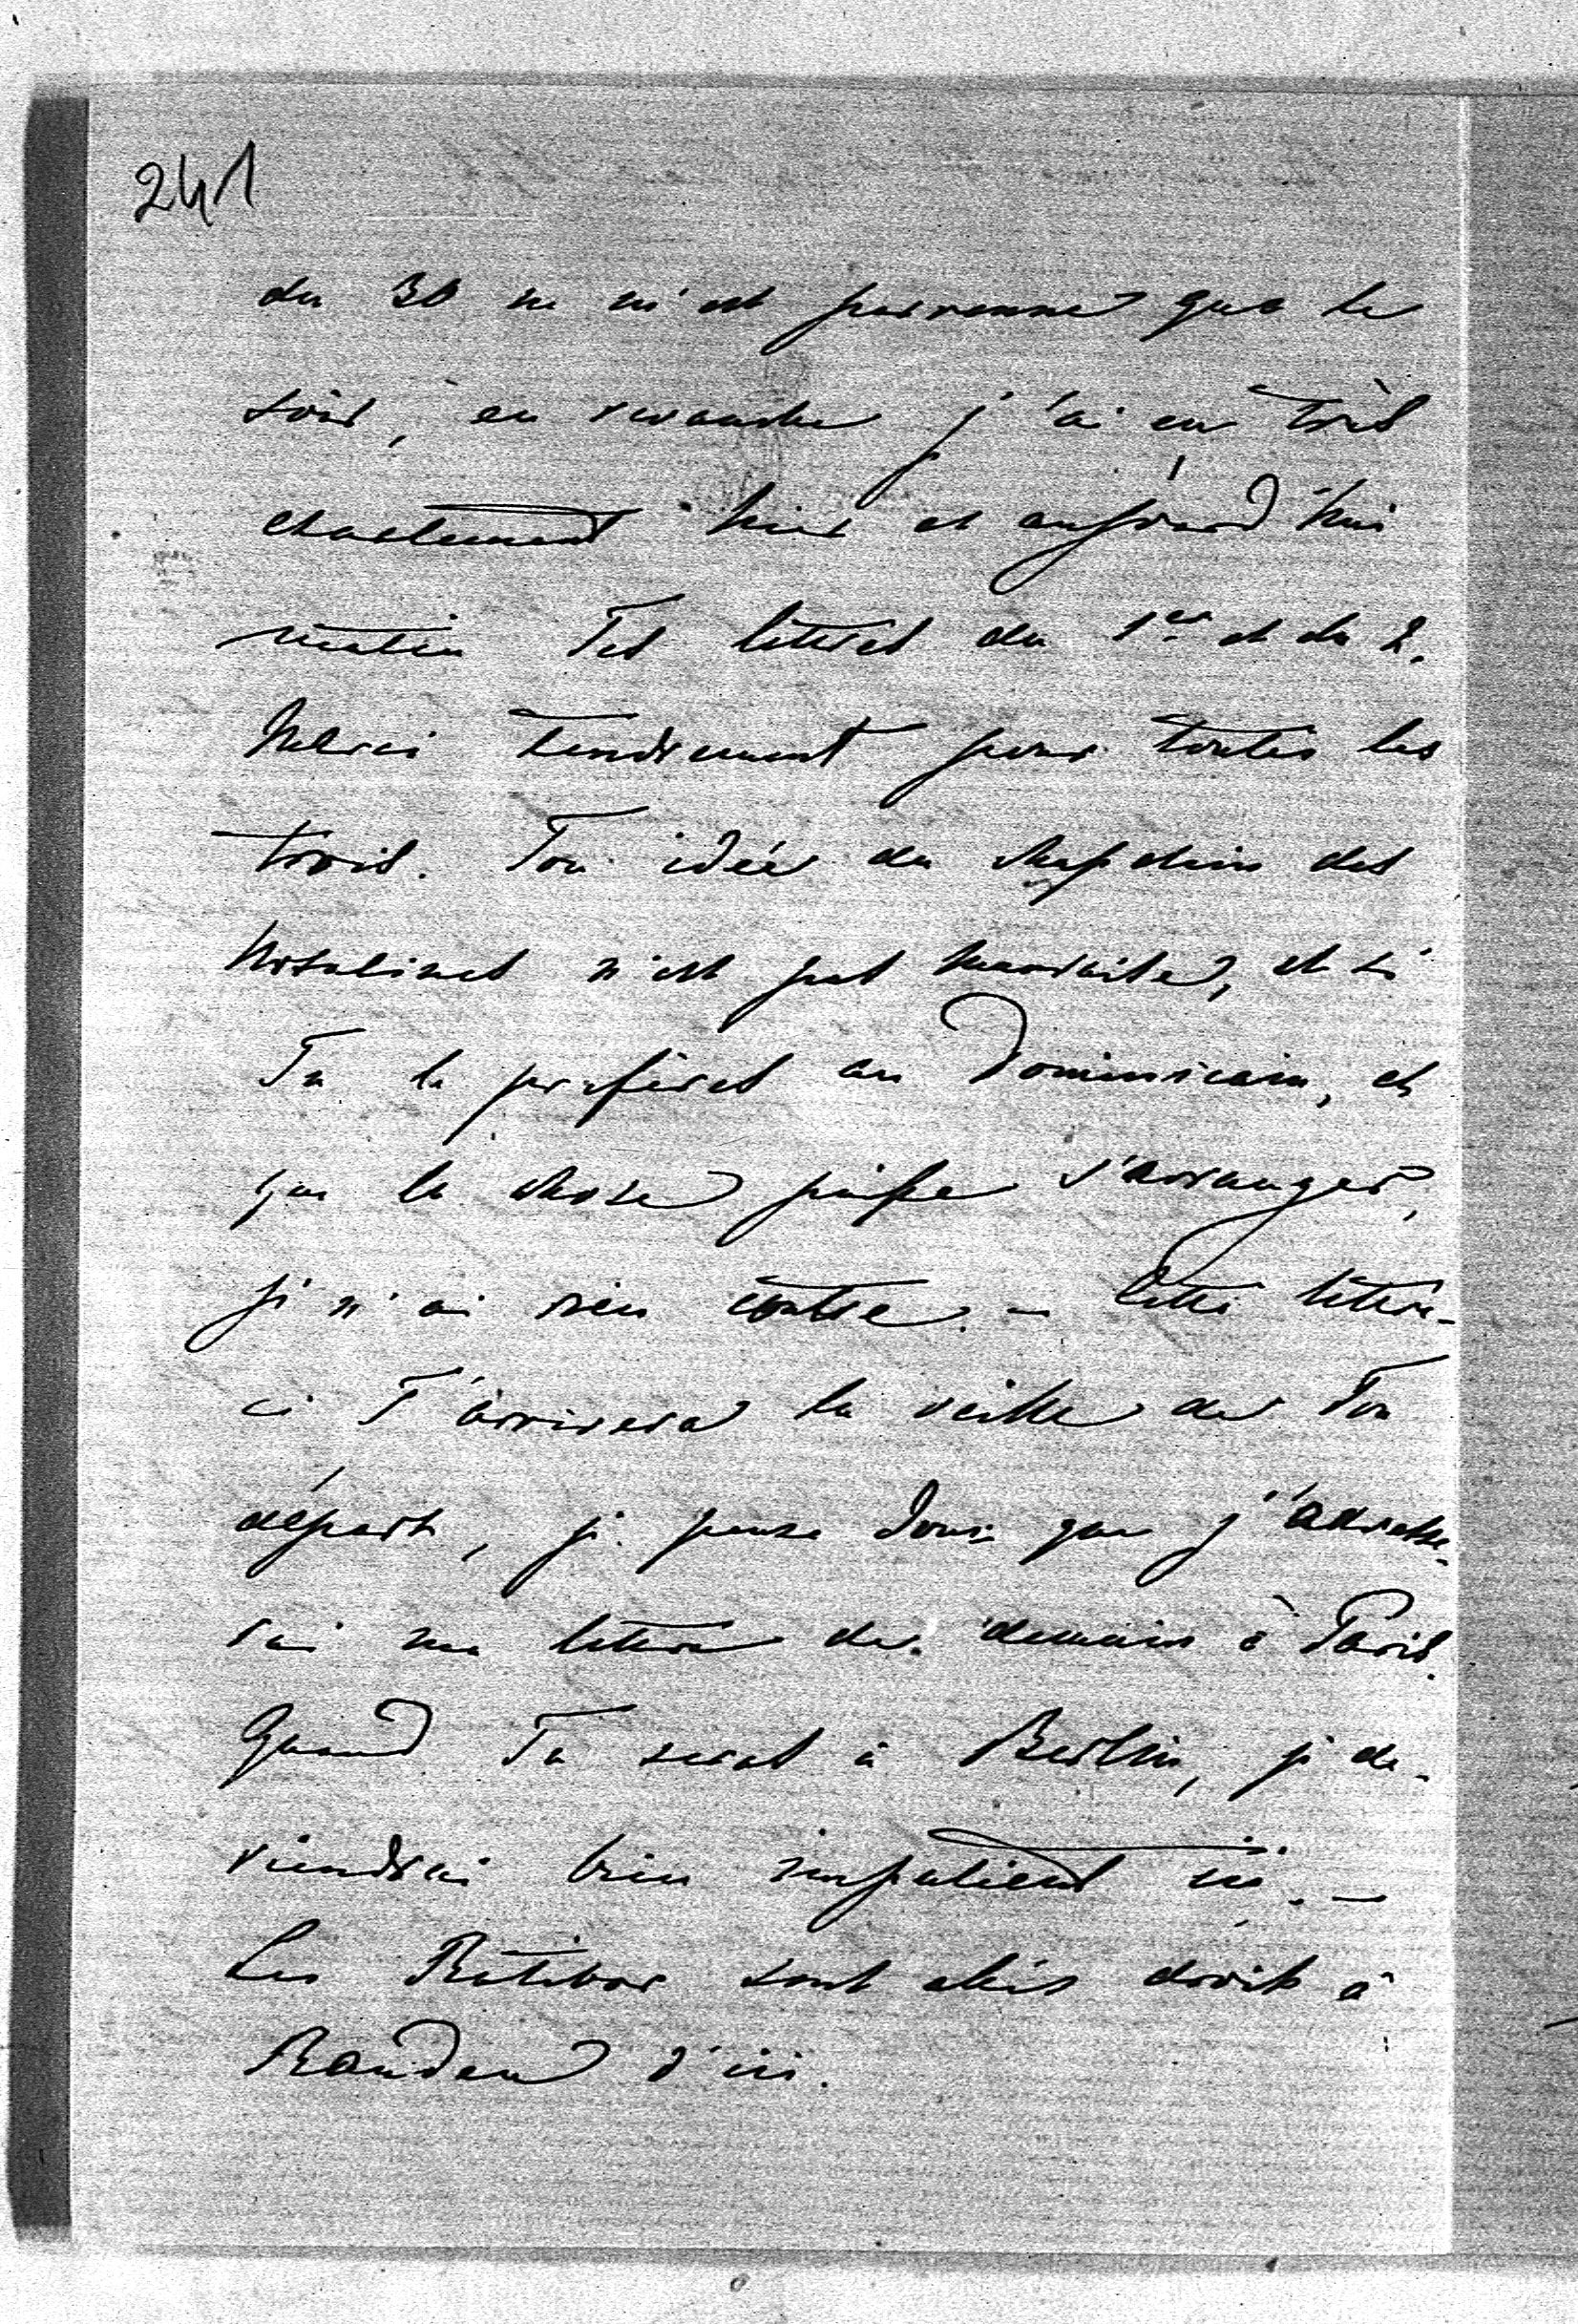 241
du 30 ne m'est parvenue que le
soir, en revanche j'ai eu très
exactement hier et aujourd'hui
matin Tes lettres du 1er et du 2.
Merci tendrement pour toutes les
trois. Ton idée du chapelain des
Ursulines n'est pas mauvaise, et si
Tu le préfères au Dominicain, et
que la chose puisse s'arranger,
je n'ai rien contre. – Cette lettre-
ci T'arrivera la veille de Ton
départ, je pense donc que j'adresse-
rai ma lettre de demain à Paris.
Quand Tu seras à Berlin, je de-
viendrai bien impatient ici. –
Les Ratibor sont allés droit à
Rauden d'ici.